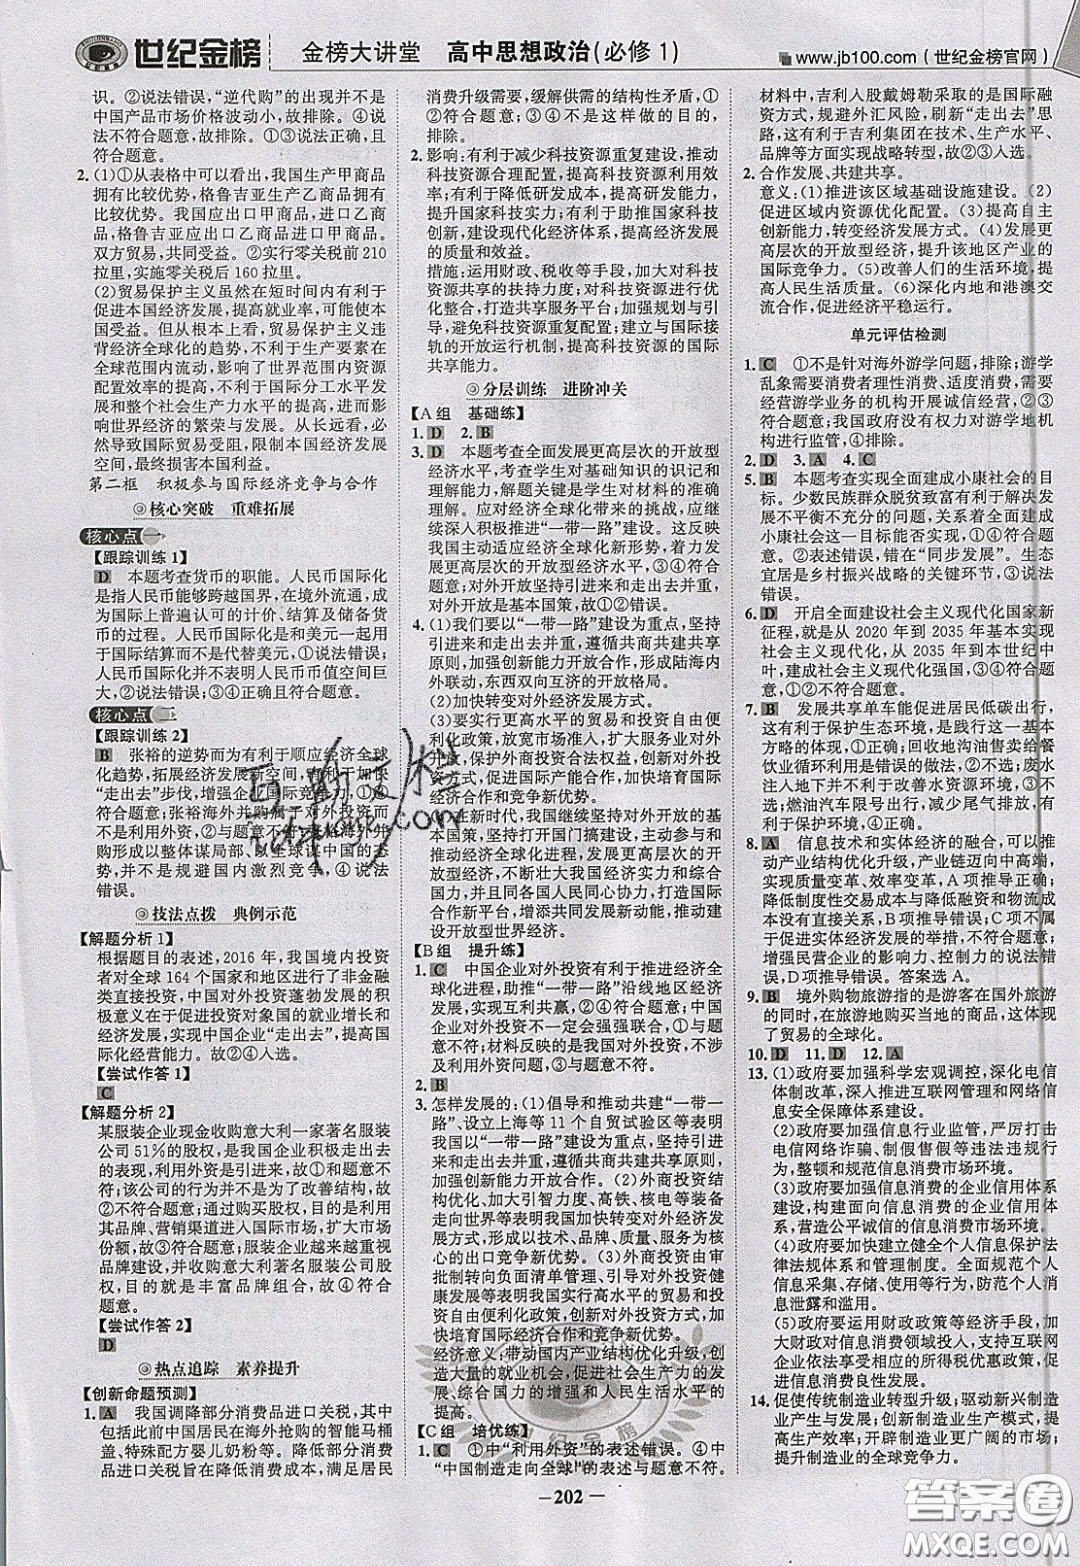 世纪金榜 金榜大讲堂 高中思想政治(必修1) www.jb100.com(世纪金榜官网)
识。②说法错误,“逆代购”的出现并不是
中国产品市场价格波动小,故排除。④说
法不符合题意,故排除。①③说法正确,且
符合题意。
2. (1)①从表格中可以看出,我国生产甲商品
拥有比较优势,格鲁吉亚生产乙商品拥有
比较优势。我国应出口甲商品,进口乙商
品,格鲁吉亚应出口乙商品,进口甲商品。
双方贸易,共同受益。②实行零关税前210
拉里,实施零关税后160拉里。
(2)贸易保护主义虽然在短时间内有利于
促进本国经济发展,提高就业率,可能使本
国受益。但从根本上看,贸易保护主义违
背经济全球化的趋势,不利于生产要素在
全球范围内流动,影响了世界范围内资源
配置效率的提高,不利于国际分工水平和
整个社会生产力水平的提高,进而
影响世界经济的繁荣与发展。从长远看,必
然导致国际贸易受阻,限制本国经济发展
空间,最终损害本国利益。
第二框 积极参与国际经济竞争与合作
核心突破 重难拓展
核心点一
【跟踪训练1】
D 本题考查货币的职能。人民币国际化
是指人民币能够跨越国界,在境外流通,成
为国际上普遍认可的计价、结算及储备货
币的过程。人民币国际化是和美元一起用
于国际结算而不是代替美元,①说法错误。
人民币国际化并不意味着人民币币值空间
巨大,②说法错误;③④正确且符合题意。
核心点二
【跟踪训练2】
B 张裕的逆势而为有利于顺应经济全球
化趋势,拓展经济发展新空间,有利于加快
“走出去”步伐,增强企业国际化经营能力,
①④符合题意;张裕海外并购属于对外投资而
不是利用外资,②错误;张裕海外并
购形成整体谋局部、以全球谋中国的态
势,并不是规避国内激烈竞争,③
说法错误。
技法点拨 典例示范
【解题分析1】
根据题目的表述,2016年,我国境内投资
者对全球164个国家和地区进行非金融
类直接投资,中国对外投资蓬勃发展的积
极意义在于促进投资对象国的就业增长和
经济发展,实现中国企业“走出去”,提高国
际化经营能力。故②④入选。
【尝试作答1】
C
【解题分析2】
某服装企业现金收购意大利一家著名服装
公司51%的股权,是我国企业积极走出去
的表现,利用外资是引进来,故①与题意不
符;该公司的行为并不是为了完善结构,故
②不符合题意;通过购买股权,目的是利用
其品牌、营销渠道进入国际市场,扩大市场
份额,故③符合题意;服装企业越来越重视
品牌建设,收购意大利著名服装公司股
权,目的是丰富品牌组合,故④符合
题意。
【尝试作答2】
D
热点追踪 素养提升
【创新命题预测】
1. A 我国调降部分消费品进口关税,其中
包括此前中国居民在海外抢购的智能马桶
盖、特殊配方婴儿奶粉等。降低部分消费
品进口关税有助于降低消费成本,满足居民
消费升级需要,缓解供需的结构性矛盾,①
②符合题意;③④不是这样做的目的,排
除。
2. 影响:有利于减少科技资源重复建设,推动
科技资源合理配置,提高科技资源利用效
率;有利于降低研发成本,提高研发能力,
提升国家科技实力;有利于助推国家科技
创新,建设现代化经济体系,提高经济发展
的质量和效益。
措施:运用财政、税收等手段,加大对科技
资源共享的扶持力度;加强科技资源的系
统优化整合,打造共享服务平台;加强规划与引
导,避免科技资源重复配置;构建与国际接轨
的开放运行机制,提高科技资源的国际
共享能力。
分层训练 进阶冲关
【A组 基础练】
1. D 2. B
3. D 本题考查全面发展更高层次的开放型
经济水平,考查学生对基础知识的识记和
理解能力。解题关键是学生对材料的准确
理解。应对经济全球化带来的影响,应该
继续深入积极推进“一带一路”建设。这反映
我国主动适应经济全球化新形势,着力
发展更高层次的开放型经济水平,③④符
合题意。对外开放坚持引进来和走出去并重,
对外开放是基本国策,故①②错误。
4. (1)我们要以“一带一路”建设为重点,坚持
引进来和走出去并重,遵循共商共建共享
原则,加强创新能力开放合作,形成陆海内
外联动、东西双向互济的开放格局。
(2)加快转变对外经济发展方式。
(3)要实行更高水平的贸易和投资自由化
便利化政策,放宽市场准入,扩大服务业对外
开放,保护外商投资合法权益。创新对外投
资方式,促进国际产能合作,加快培育国际
经济合作和竞争新优势。
(4)进入新时代,我国继续坚持对外开放的基
本国策,坚持打开国门搞建设,主动参与和
推动经济全球化进程,发展更高层次的开放
型经济,不断壮大我国经济实力和综合
国力,同心构建人类命运共同体,打造国际
合作新平台,增添共同发展新动力,推动
建设开放型世界经济。
【B组 提升练】
1. C 中国企业对外投资有利于推进经济全
球化进程,投资基建有利于沿线地区经济发
展,实现互利共赢,②③符合题意。①
中国企业对外投资不一定会增强国际竞争力,①与
题意不符;材料反映的是我国对外投资,不涉
及利用外资问题,④与题意不符。
2. B
3. 怎样发展的:(1)倡导和推动共建“一带一
路”、设立上海等11个自贸试验区等表明
我国以“一带一路”建设为重点,坚持引进
来和走出去并重,遵循共商共建共享原则,
加强创新能力开放合作。(2)外商投资结
构优化,加大引智力度、高铁、核电等装备
走向世界等表明我国加快转变对外经济发
展方式,形成以技术、品牌、质量、服务为核
心的出口竞争新优势。(3)外商投资由审
批制转向负面清单管理、引导对外投资健
康发展等表明我国实行高水平的贸易和
投资自由化便利化政策,创新对外投资方式,加
快培育国际经济合作和竞争新优势。
经济意义:带动国内产业结构优化升级,创
造大量的就业机会,促进社会生产力的发
展、综合国力的增强和人民生活水平的
提高。
【C组 培优练】
1. C ①中“利用外资”的表述错误。④中
“中国制造走向全球”的表述与题意不符。
材料中,吉利入股戴姆勒采取的是国际融
资方式,规避外汇风险,刷新“走出去”思
路,这有利于吉利集团在技术、生产水平、
品牌等方面实现战略转型,②③入选。
2. 合作发展、共建共享。
意义:(1)推进该区域基础设施建设。(2)
促进区域内资源优化配置。(3)提高自主
创新能力,转变经济发展方式。(4)发展
更高层次的开放型经济,提升该地区产业的
国际竞争力。(5)改善人们的生活环境,提
高人民生活质量。(6)深化内地和港澳交
流合作,促进经济平稳运行。
单元评估检测
1. C ①不是针对海外游学问题,排除;游学
乱象需要消费者理性消费、适度消费,需要
经营游学业务的机构开展诚信经营,②③
符合题意;我国政府没有权力对游学地机
构进行监管,④排除。
2. D 3. A 4. C
5. B 本题考查全面建成小康社会的目
标。少数民族群众脱贫致富有利于実现全面建成
小康社会这一目标能否实现,①④符合题
意;②表述错误,错在“同步发展”。生态
宜居是乡村振兴战略的关键环节,③说法
错误。
6. D 开启全面建设社会主义现代化国家新
征程,就是从2020年到2035年基本实现
社会主义现代化,从2035年到本世纪中
叶,建成社会主义现代化强国,①②不符合
题意,③④符合题意。
7. B 发展共享单车能促进居民低碳出行,
这有利于保护生态环境,是践行绿色生活
方式的体现,①正确;回收地沟油售卖给餐
饮业循环利用是错误的做法,②不选;废水
注入地下并不能改善水资源环境,③不
选;燃油汽车限号出行,减少尾气排放,有
利于保护环境,④正确。
8. A 信息技术和实体经济的融合,可以推
动产业结构优化升级,产业链迈向中高端,
实现质量变革、效率变革,A项符合题意。
不能认为互联网金融没有风险和物流成
本没有增加,B项推导错误。C项与题意不符,
应是促进实体经济发展的举措,不符合题意。
增强民营经济的影响力、控制力的说法错
误,D项推导错误。答案选A。
9. B 境外购物旅游指的是游客在国外旅游
的同时,在旅游地购买当地的商品,这体
现了贸易的全球化。
10. D 11. D 12. A
13. (1)政府要加强科学宏观调控,深化电信
体制改革,深入推进互联网管理和网络信
息安全保障体系建设。
(2)政府要加强信息行业监管,严厉打击
电信网络诈骗、制假售假等违法犯罪行
为,整顿和规范信息消费市场环境。
(3)政府要加强信息消费的企业信用体系
建设,构建守信激励和失信惩戒机
制,营造公平诚信的信息消费市场环境。
(4)政府要加快建立健全个人信息保护法
律法规体系和管理制度。全面规范个人信
息采集、存储、使用等行为,防范个人消
息泄露和滥用。
(5)政府要运用财政政策等经济手段,加
大对信息消费领域投入,支持互联网
企业创新发展,落实相关的所得税优惠政策,促进
信息消费良性发展。
14. 促使传统制造业转型升级,驱动新兴制造
业产生与发展;创新制造业生产模式,提
高生产效率;开辟制造业更广阔的市场;
提升制造业的全球竞争力。
— 202 —
答案圈
MXQE.COM